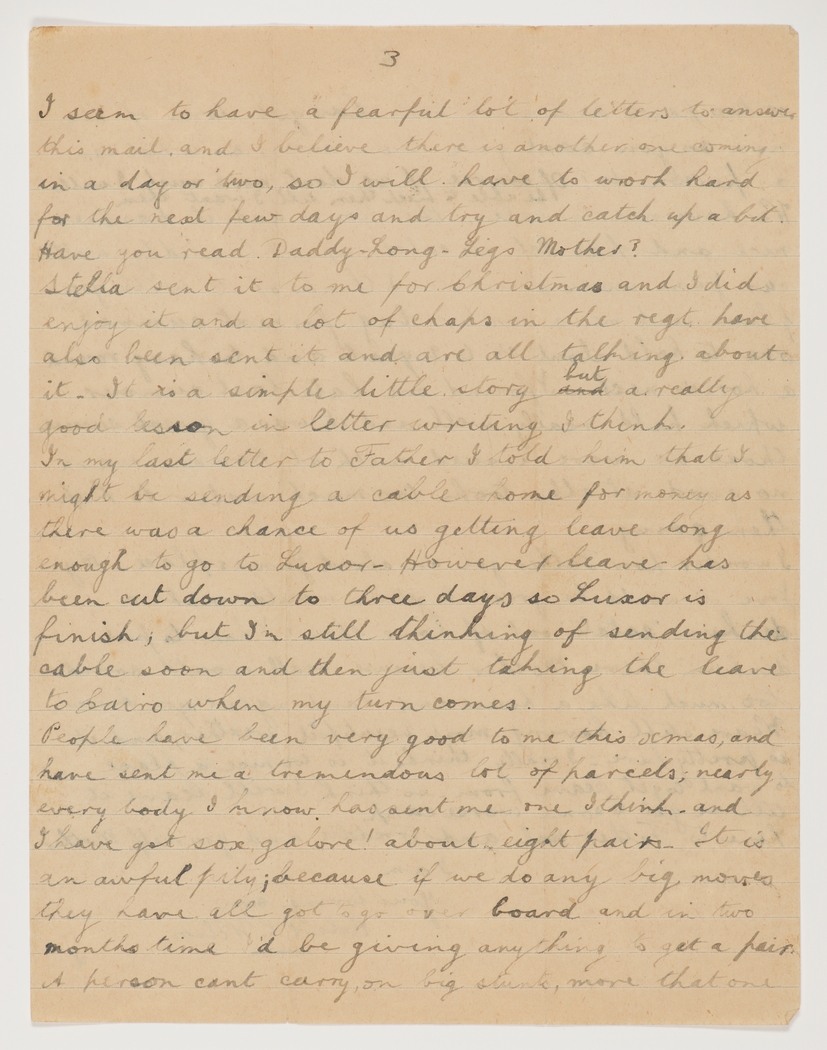 3
I seem to have a fearful lot of letters to answer
this mail. and I believe there is another one coming
in a day or two, so I will have to work hard
for the next few days and try and catch up a bit.
Have you read Daddy-Long-Legs Mother?
Stella sent it to me for Christmas and I did
enjoy it and a lot of chaps in the regt have
also been sent it and are all talking about
it - It is a simple little story and but a really
good lesson in letter writing I think.
In my last letter to Father I told him that I
might be sending a cable home for money as
there was a chance of us getting leave long
enough to go to Luxor - However leave has
been cut down to three days so Luxor is
finish; but I'm still thinking of sending the
cable soon and then just taking the leave
to Cairo when my turn comes.
People have been very good to me this xmas, and
have sent me a tremendous lot of parcels; nearly
every body I know has sent me one I think - and
I have got sox galore! about eight pairs - It is
an awful pity; because if we do any big moves
they have all got to go over board and in two
months time I'd be giving anything to get a pair.
A person cant carry, on big stunts, more that one